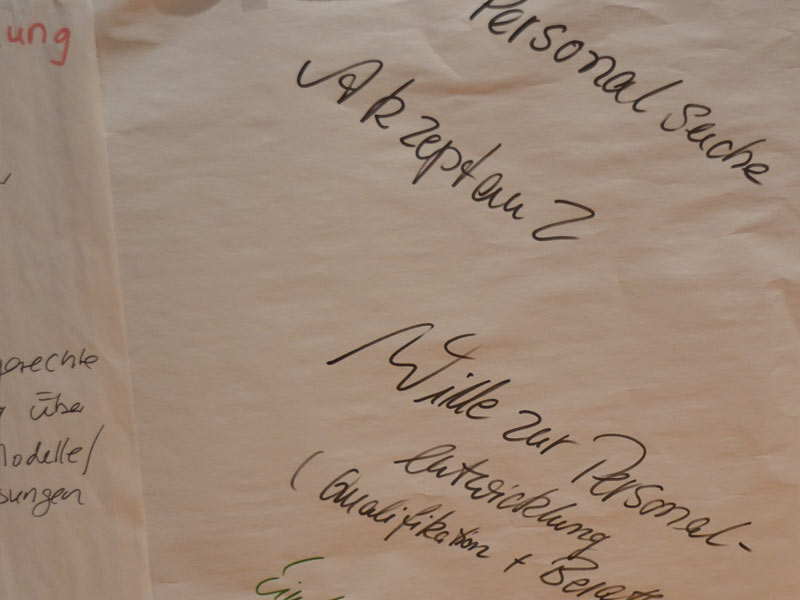 ung
gerechte
über
Modelle/
sungen
Personalsuche
Akzeptanz
Wille zur Personal-
entwicklung
(Qualifikation + Berat
Ein